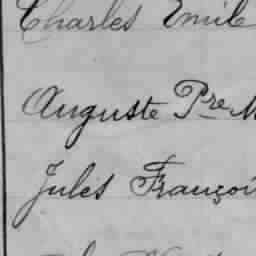 Charles Emile
Auguste Pre M
Jules Françoi